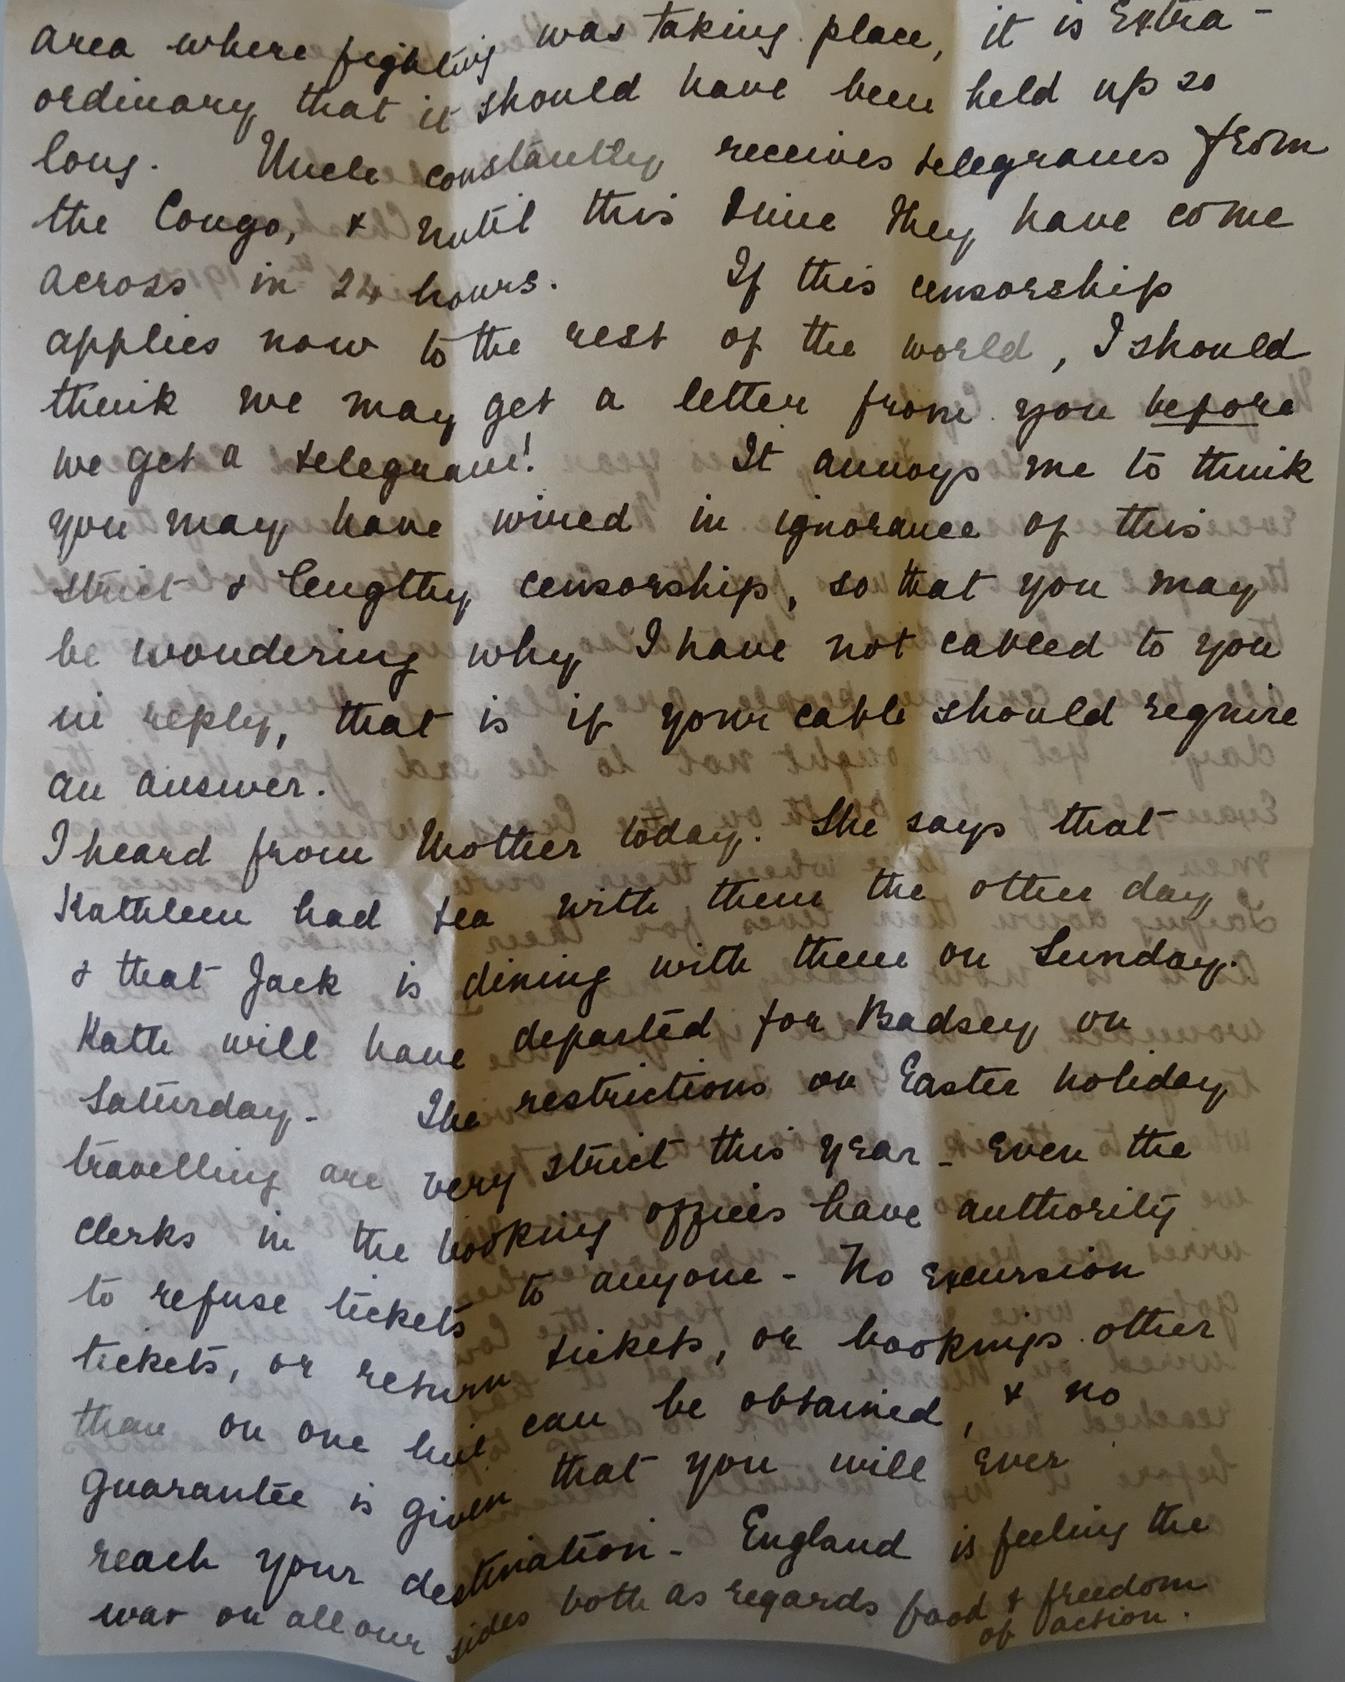 area where fighting was taking place, it is Extra-
ordinary that it should have been held up so
long. Uncle constantly receives telegrams from
the Congo, & until this time they have come
across in 24 hours. If this censorship
applies now to the rest of the world, I should
think we may get a letter from you before
we get a telegram! It annoys me to think
you may have wired in ignorance of this
strict & lengthy censorship, so that you may
be wondering why I have not cabled to you
in reply, that is if your cable should require
an answer.
I heard from Mother today. She says that
Kathleen had tea with them the other day
& that Jack is dining with them on Sunday.
Kath will have departed for Badsey on
Saturday - The restrictions on Easter holiday
travelling are very strict this year - Even the
clerks in the booking offices have authority
to refuse tickets to anyone - No Excursion
tickets, or return tickets, or bookings other
than on one line can be obtained, & no
guarantee is given that you will Ever
reach your destination - England is feeling the
war on all our sides both as regards food & freedom
of action.